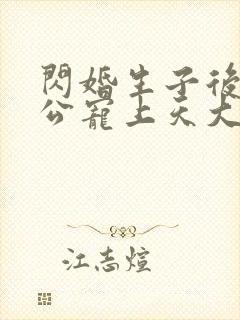 閃婚生子後
公寵上天大
江志煊